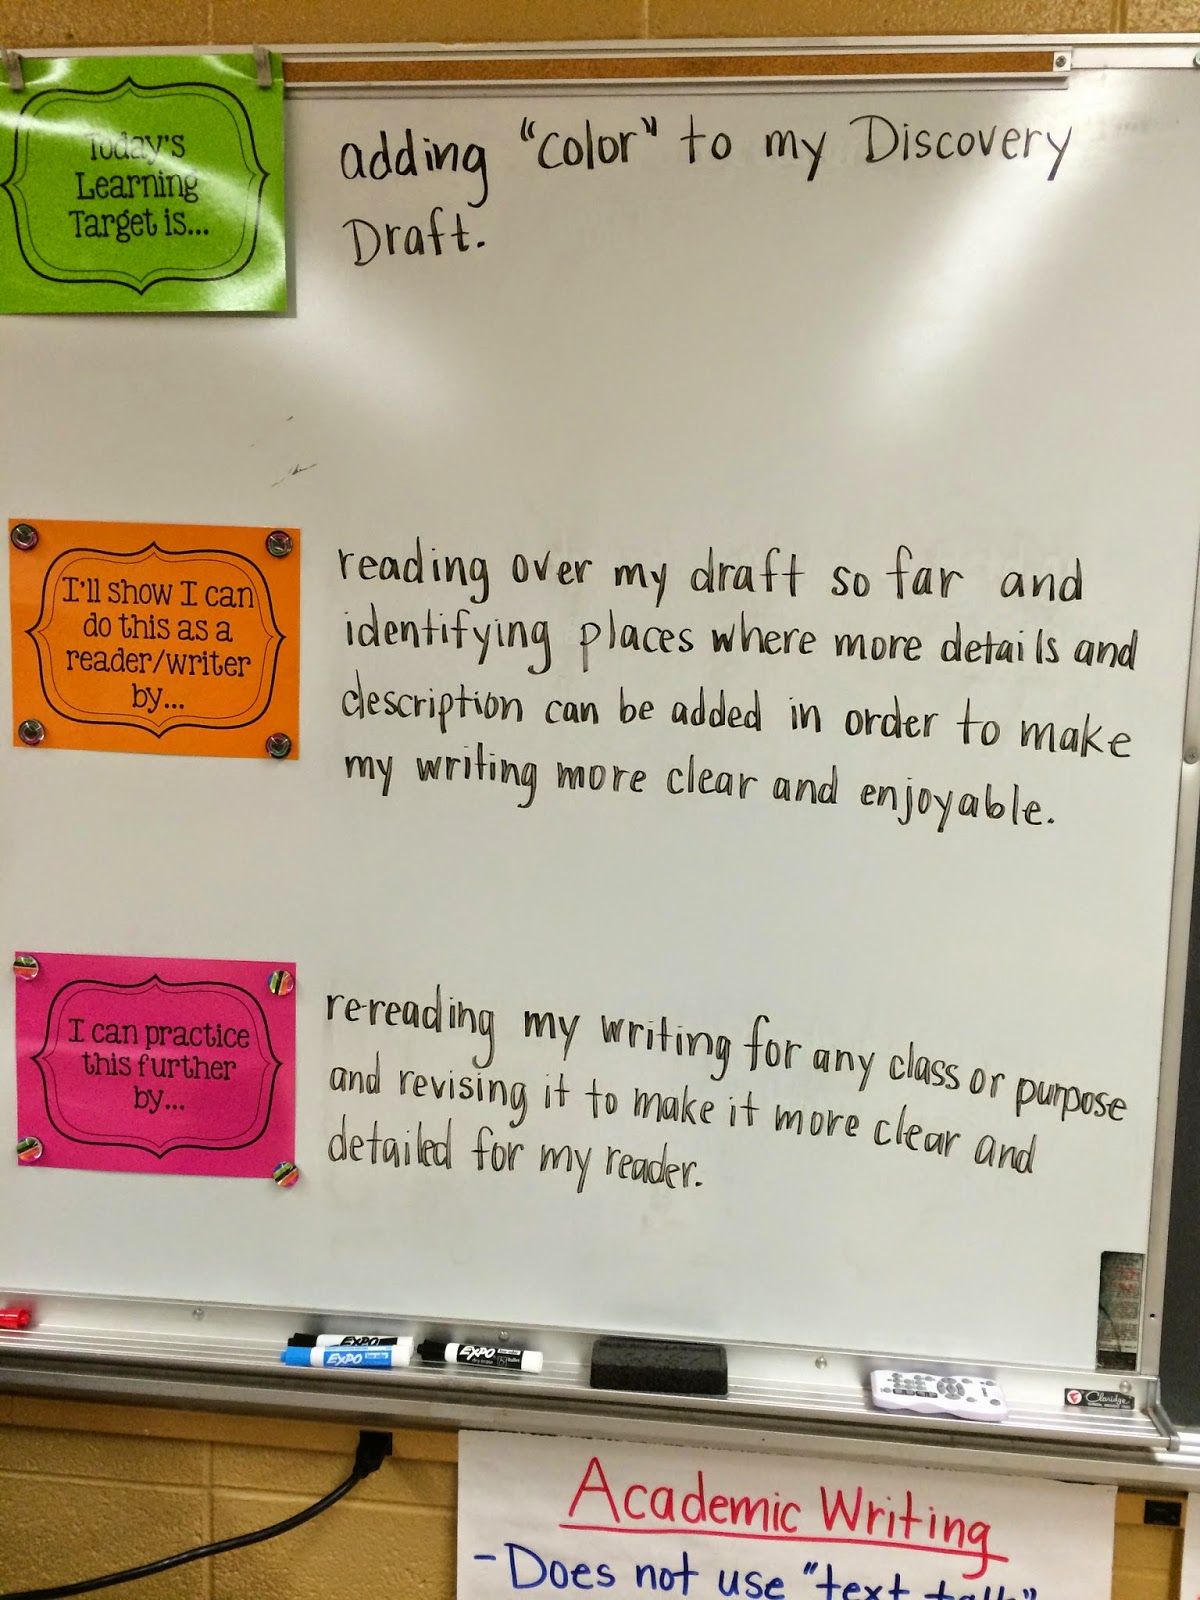 Today's
Learning
Target is...
adding "color" to my Discovery
Draft.
I'll show I can
do this as a
reader/writer
by...
reading over my draft so far and
identifying places where more details and
description can be added in order to make
my writing more clear and enjoyable.
I can practice
this further
by...
re-reading my writing for any class or purpose
and revising it to make it more clear and
detailed for my reader.
EXPO
EXPO
EXPO
Claridge
Academic Writing
- Does not use "text talk"